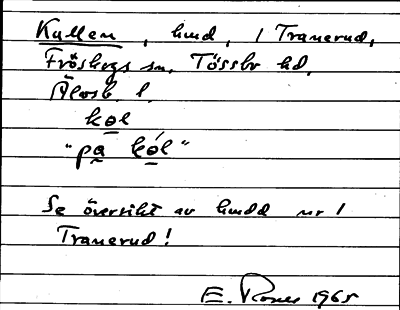 Kullen, hmd, i Tranerud,
Fröskogs sn, Tössbo hd,
Älvsb. l.
kol
"på kól"
Se översikt av hmdd nr 1
Tranerud!
E. 1965